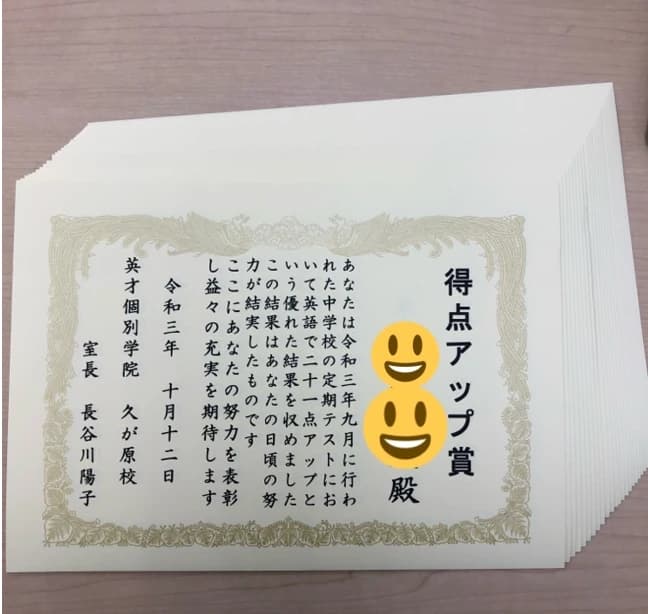 得点アップ賞
殿
あなたは令和三年九月に行わ
れた中学校の定期テストにお
いて英語で二十一点アップと
いう優れた結果を収めました
この結果はあなたの日頃の努
力が結実したものです
ここにあなたの努力を表彰
し益々の充実を期待します
令和三年 十月十二日
英才個別学院 久が原校
室長 長谷川陽子